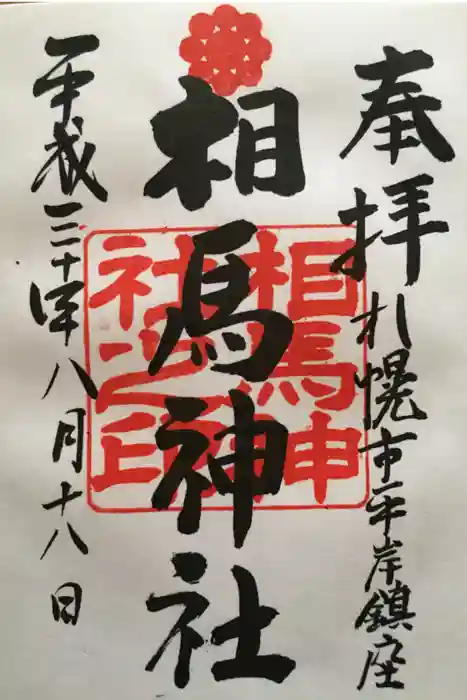 奉拝
札幌市平岸鎮座
相馬神社
相馬神社之印
平成三十年八月十八日